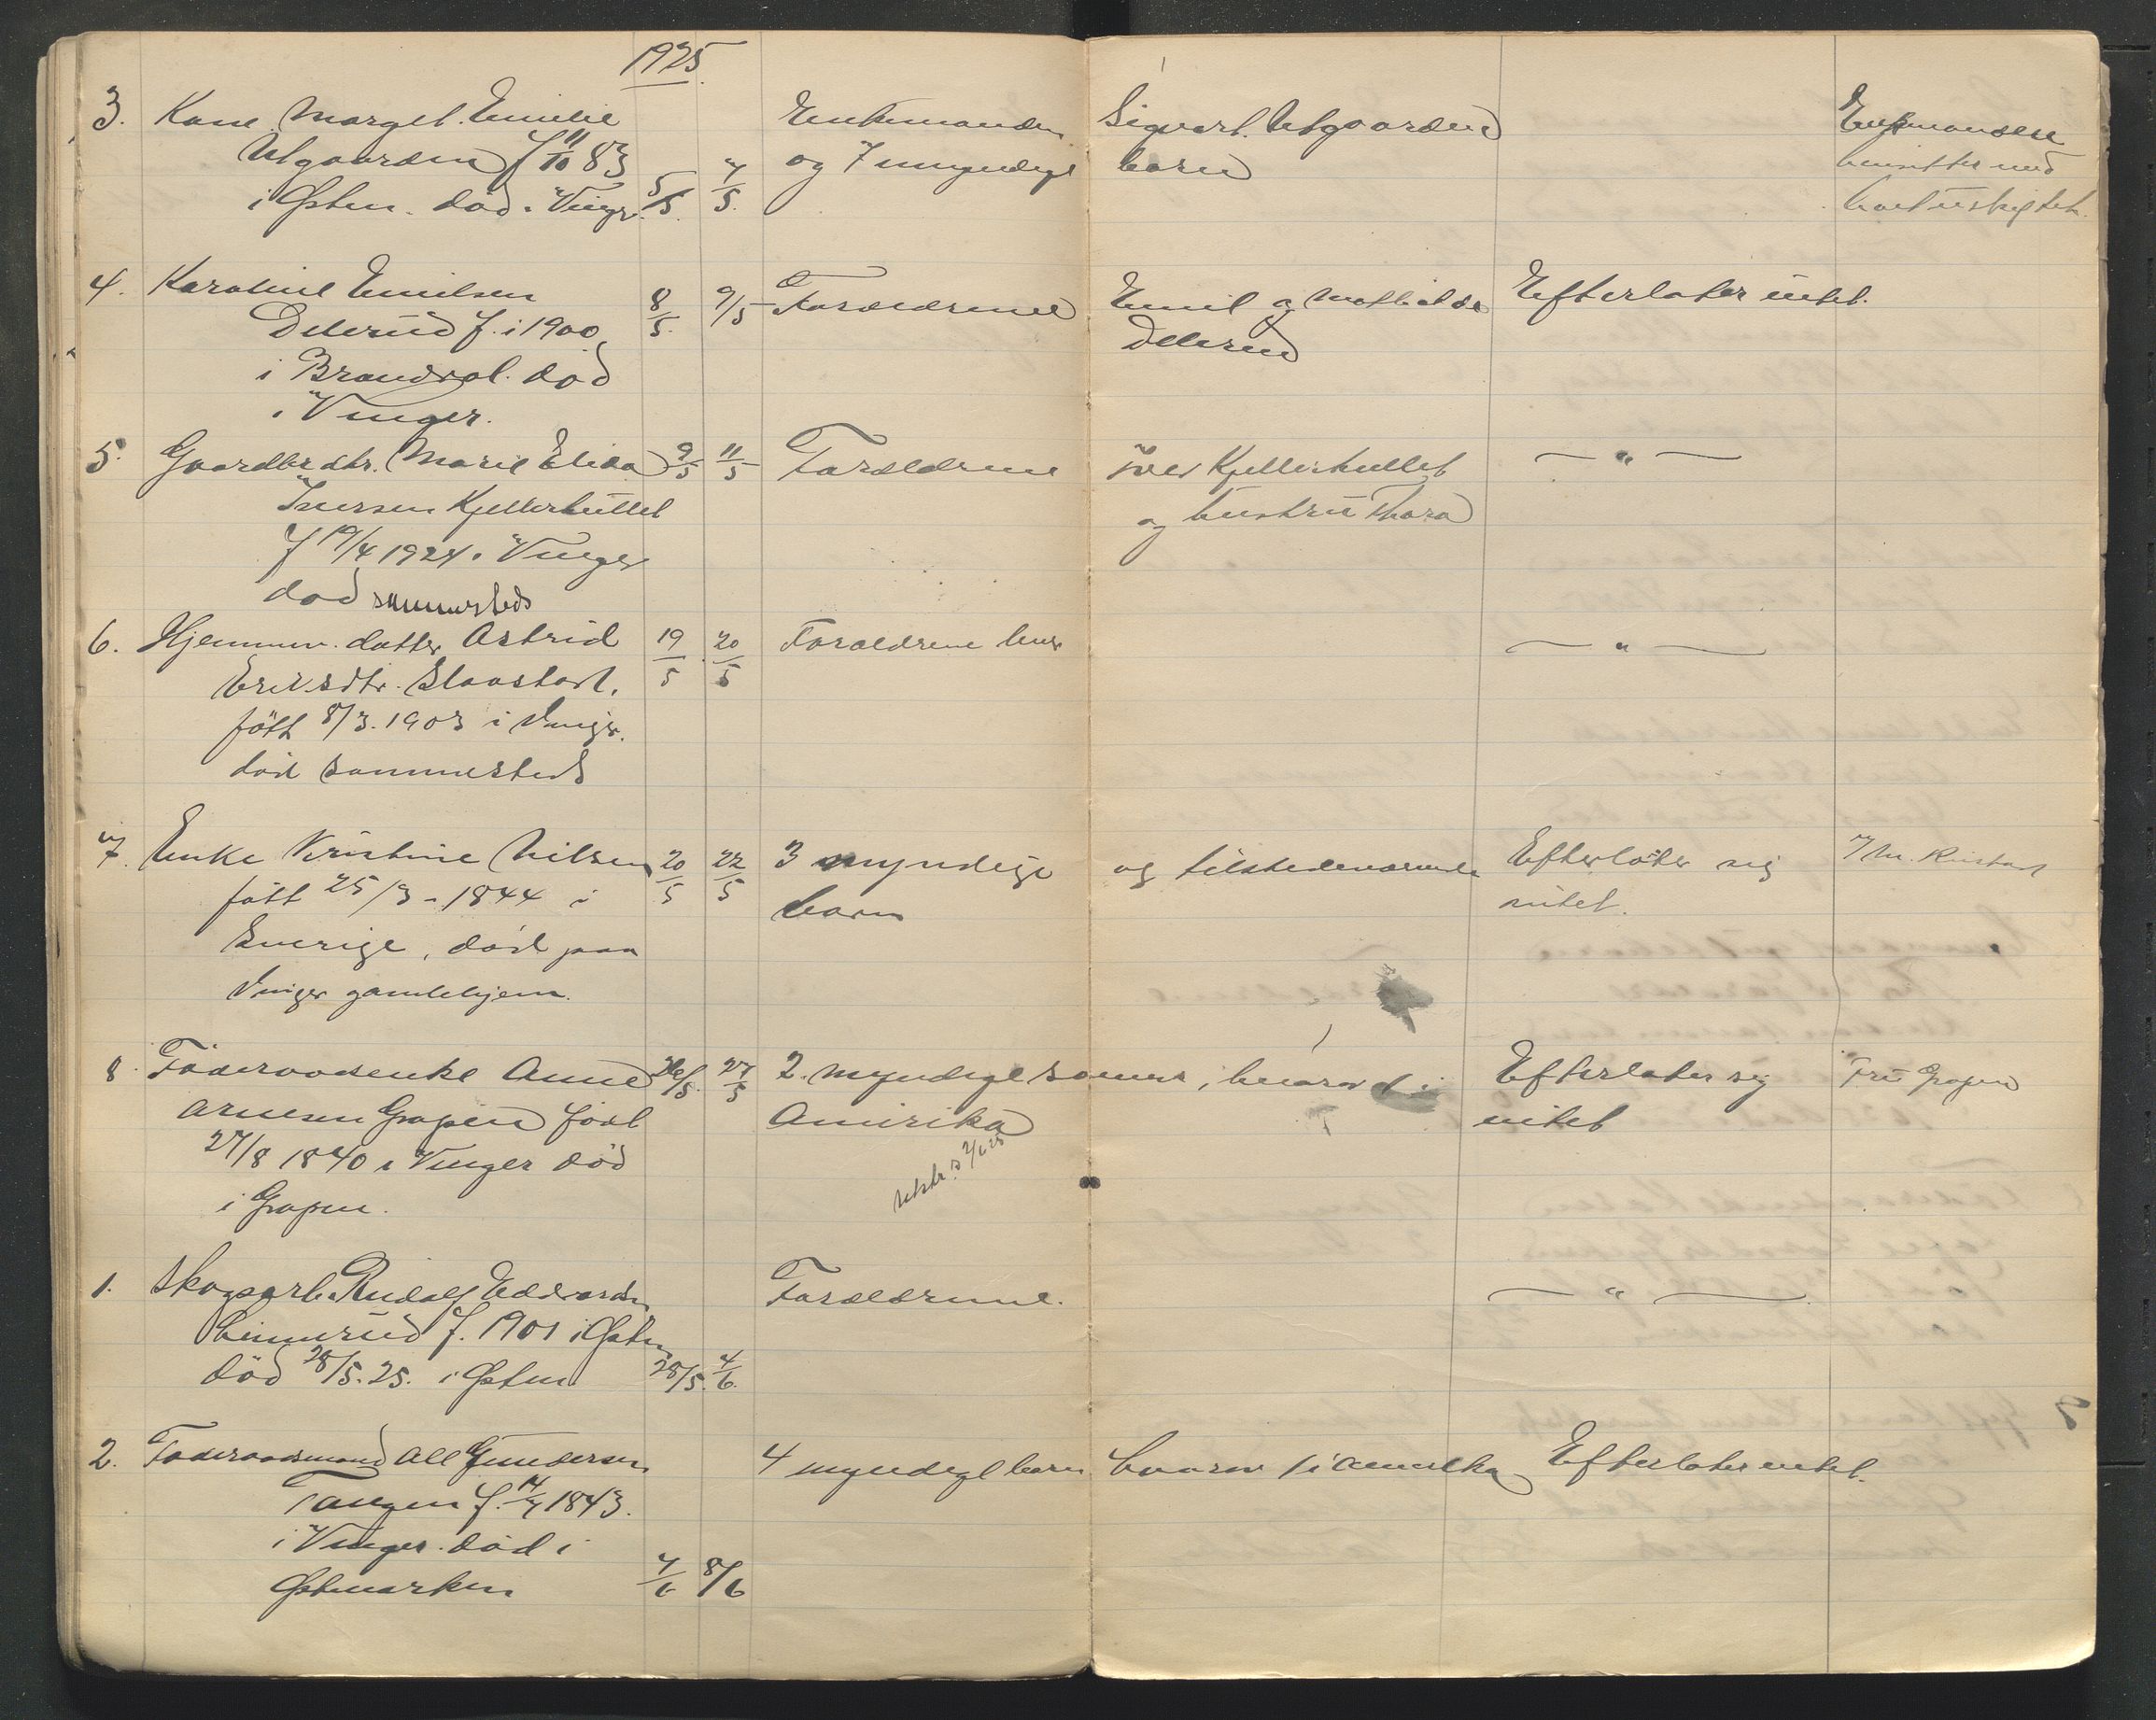 1925.
3. Kone Marget. Emilie Enkemanden Sigvart. Utgaarden Enkemanden
Utgaarden f 11/10 83 og 7 umyndige barn hensitter med
i Østm. død i Vinger. 5/5. 7/5. boet uskiftet.
4. Karoline Emilsen 8/5. 9/5 Forældrene Emil og Mathilde Efterlater intet.
Delerud f. i 1900 Delerud
i Brandval. død
i Vinger.
5. Gaardbr dtr. Marie Elida 9/5 11/5 Forældrene Iver Kjellerhullet — " —
Iversen Kjellerhullet og hustru Thora
f 19/4 1924 i Vinger
død sammesteds
6. Hjemmev. datter Astrid 19/5 20/5 Forældrene — " —
Eriksdtr. Slaastad.
født 8/3. 1903 i Vinger.
død sammesteds
7. Enke Kristine Nilsen 20/5 22/5 3 myndige og tilstedeværende Efterlater sig
født 25/3 - 1844 i barn intet.
Sverige, død paa
Vinger gamlehjem.
8. Föderaadsenke Anne 26/5. 27/5 2. myndige sønner, hvorav 1 i Efterlater sig Fru Grapen
Arnesen Grapen født Amerika intet
27/8 1840 i Vinger død
i Grapen.
1. Skogsarb. Rudolf Edvardsen Forældrene. — " —
Linnerud f. 1901 i Østm
død 28/5. 25. i Østm 28/5. 4/6.
2. Föderaadsmand Ole Gundersen 4 myndige barn hvorav 1 i Amerika Efterlater intet.
Tangen f. 14/7 1843.
i Vinger. død i
Østmarken 7/6 8/6